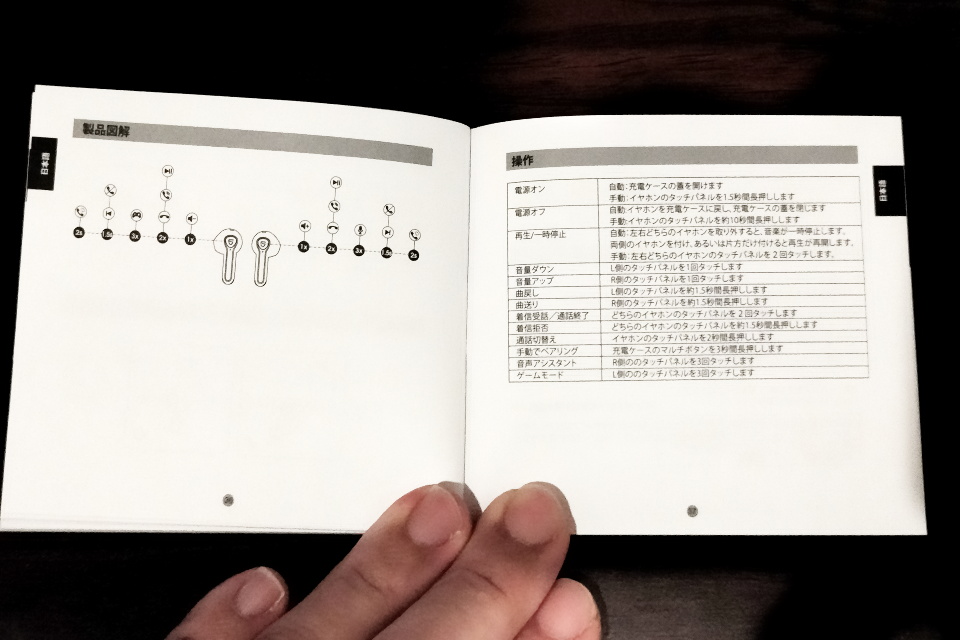 製品図解
日本語
2s 1.5s 3x 2x 1x
1x 2x 3x 1.5s 2s
26
操作
日本語
電源オン 自動：充電ケースの蓋を開けます
手動：イヤホンのタッチパネルを1.5秒間長押しします
電源オフ 自動:イヤホンを充電ケースに戻し、充電ケースの蓋を閉じます
手動:イヤホンのタッチパネルを約10秒間長押しします
再生/一時停止 自動：左右どちらのイヤホンを取り外すると、音楽が一時停止します。
両側のイヤホンを付け、あるいは片方だけ付けると再生が再開します。
手動：左右どちらのイヤホンのタッチパネルを２回タッチします。
音量ダウン L側のタッチパネルを1回タッチします
音量アップ R側のタッチパネルを1回タッチします
曲戻し L側のタッチパネルを約1.5秒間長押しします
曲送り R側のタッチパネルを約1.5秒間長押しします
着信受話／通話終了 どちらのイヤホンのタッチパネルを２回タッチします
着信拒否 どちらのイヤホンのタッチパネルを約1.5秒間長押しします
通話切替え イヤホンのタッチパネルを2秒間長押しします
手動でペアリング 充電ケースのマルチボタンを3秒間長押しします
音声アシスタント R側ののタッチパネルを3回タッチします
ゲームモード L側ののタッチパネルを3回タッチします
27